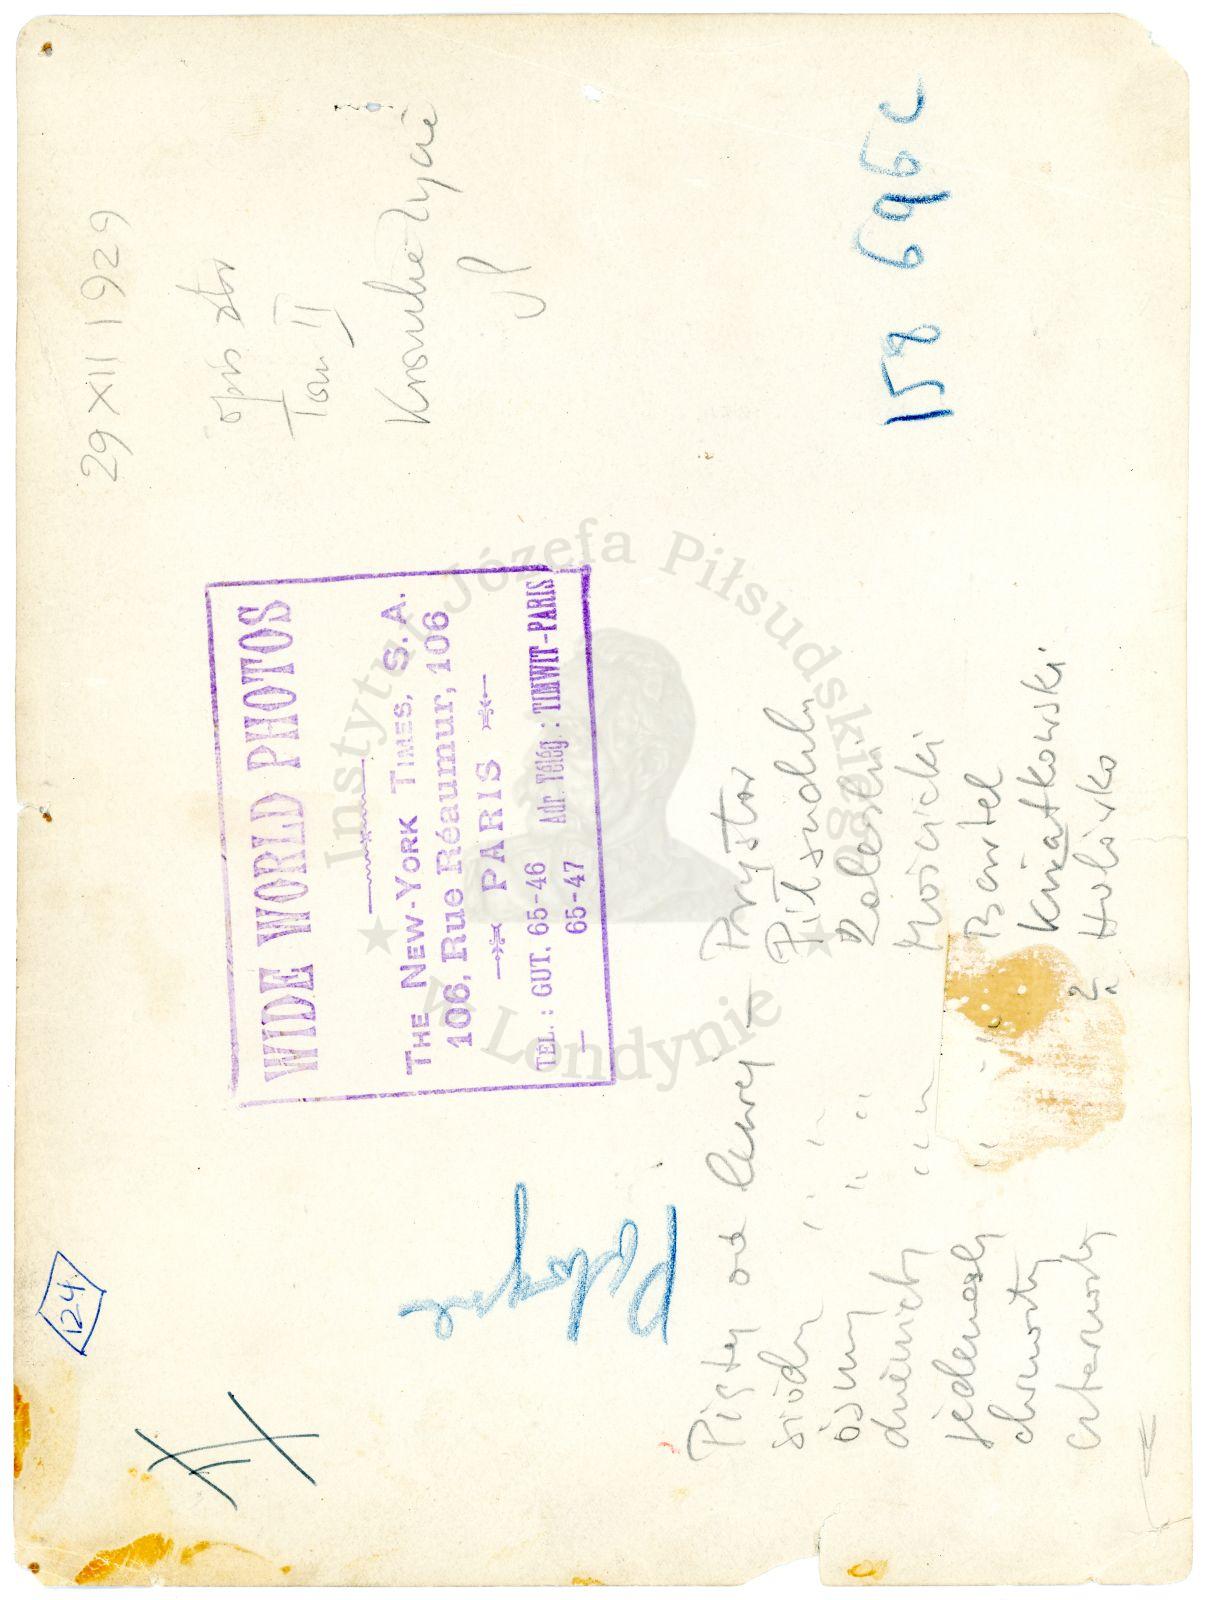 29 XII 1929
opis
Tom II
158 696 c
WIDE WORLD PHOTOS
THE NEW-YORK TIMES, S. A.
106, Rue Réaumur, 106
PARIS
TEL. : GUT. 65-46 Adr. Télég. : TIMWIT-PARIS
65-47
Instytut Józefa Piłsudskiego
w Londynie
124
Piąty od lewej — Prystor
siódmy " " Piłsudski
ósmy " " Zaleski
" " Mościcki
" " Bartel
Kwiatkowski
czternasty ? Hołówko